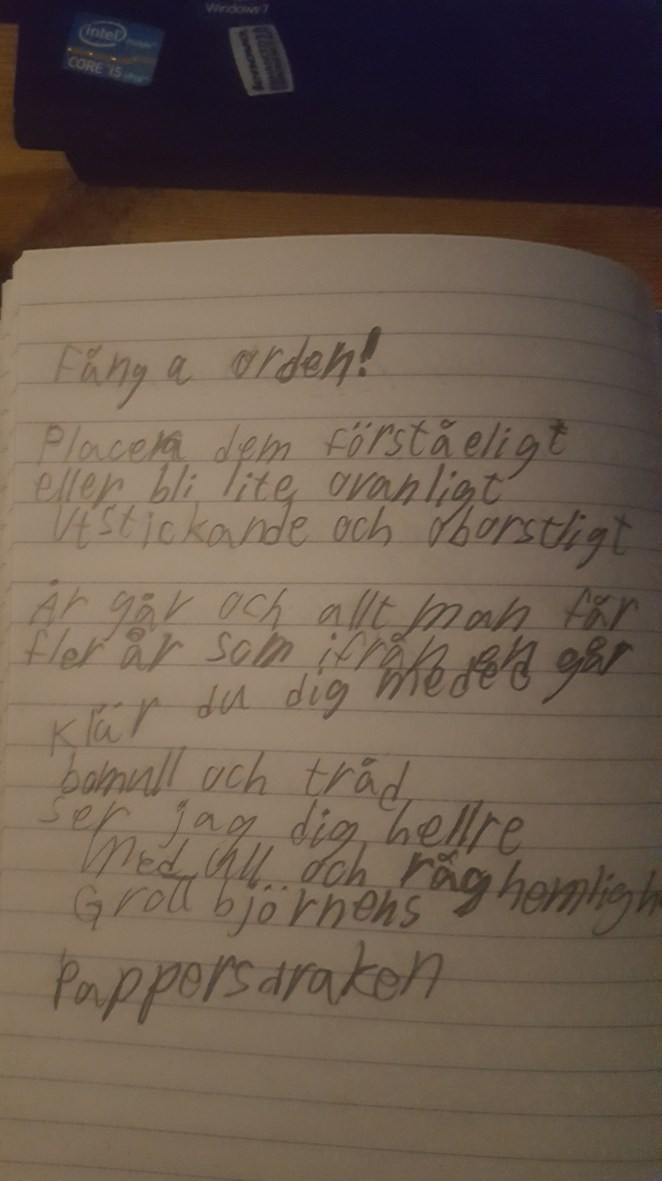 Windows 7
intel
CORE i5
Fånga orden!
Placera dem förståeligt
eller bli lite ovanligt
Utstickande och oborstligt
År går och allt man får
fler år som ifrån en går
Klär du dig med
bomull och tråd
ser jag dig hellre
Med ull och råg
Groll björnens
Pappersdraken